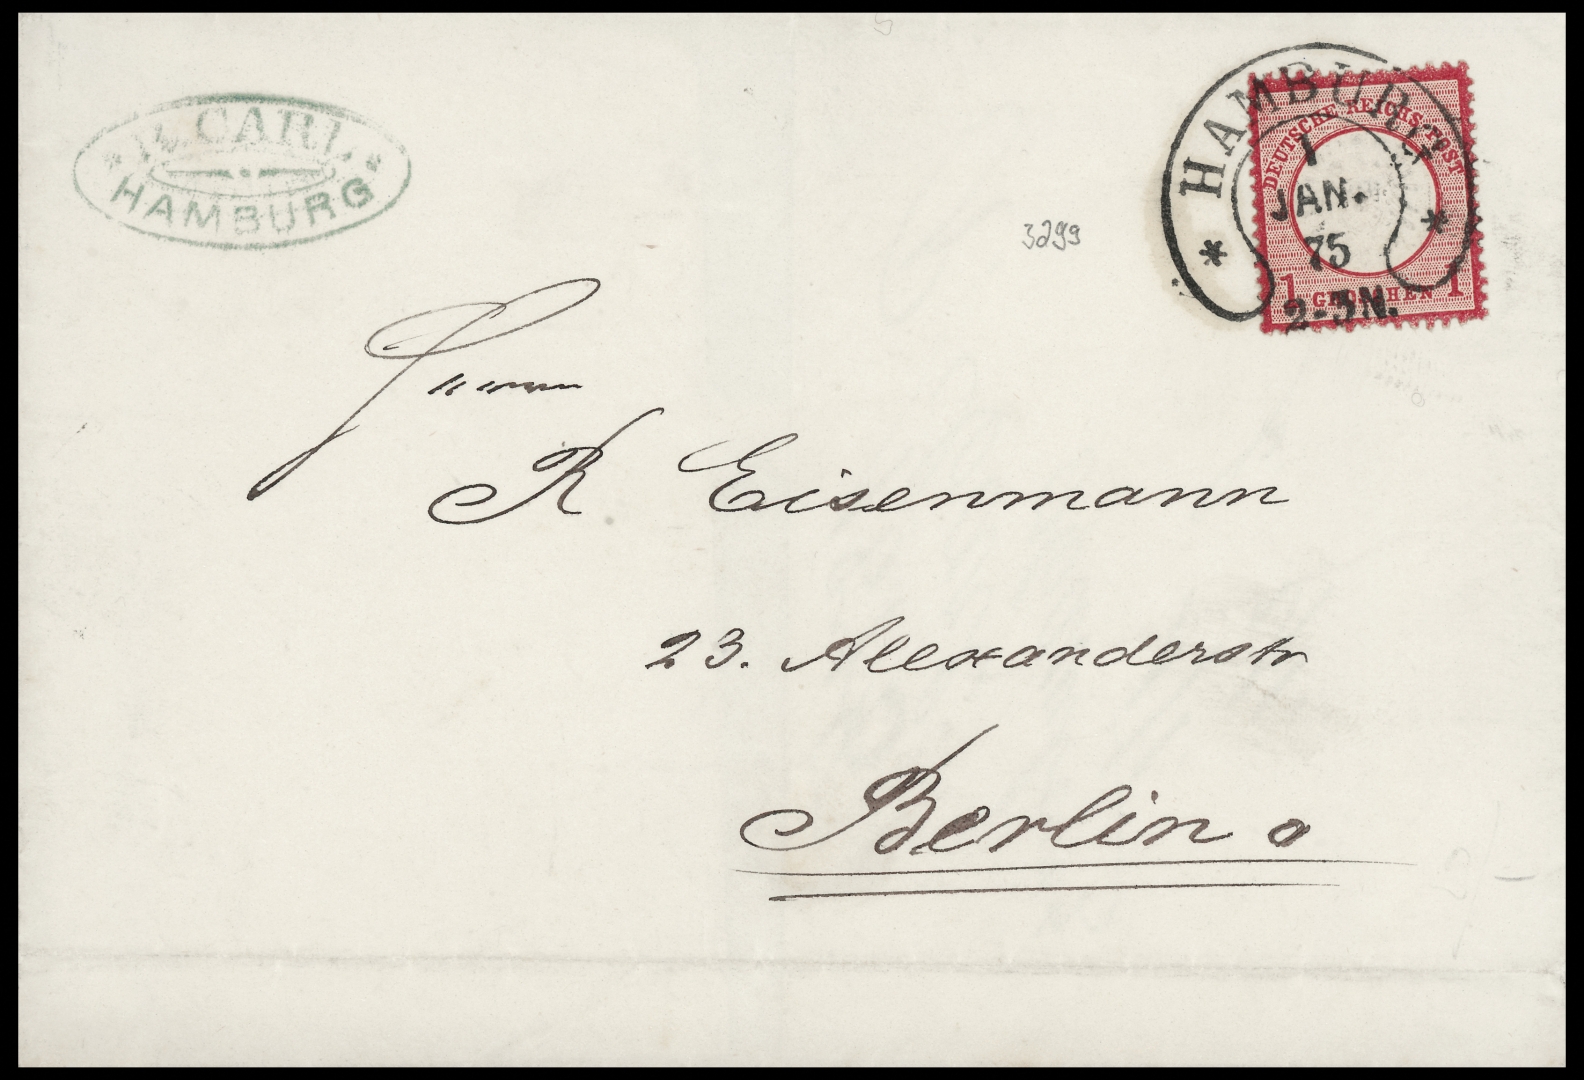 CARL
HAMBURG
HAMBURG
DEUTSCHE REICHS-POST
1
JAN.
75
1 GROSCHEN 1
2-3N.
3299
Herrn
R Eisenmann
23. Alexanderstr
Berlin